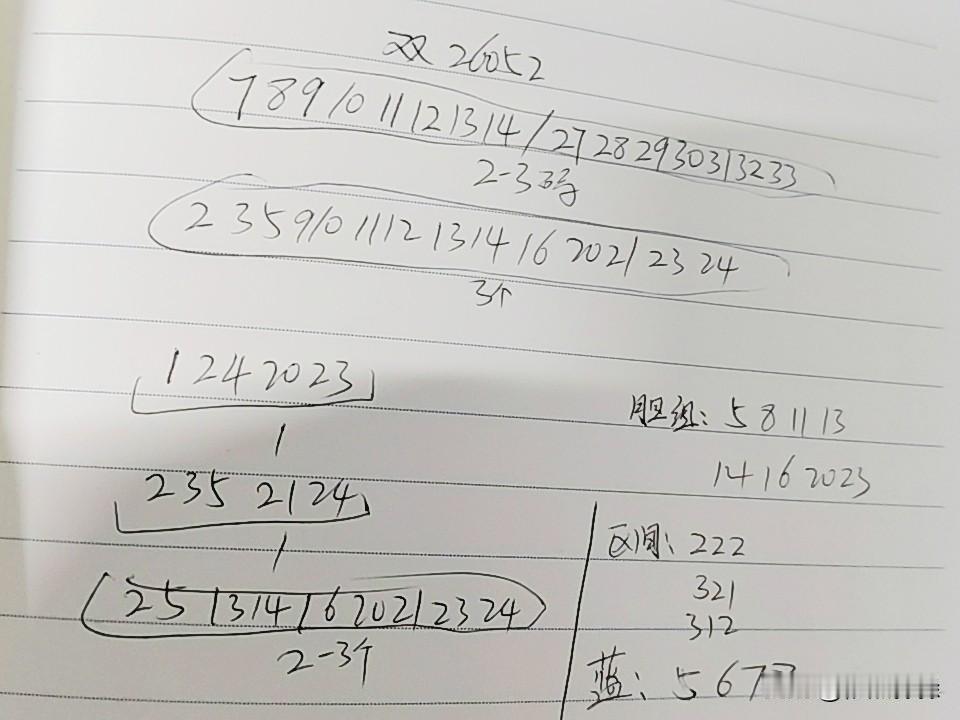 双 26052
7 8 9 10 11 12 13 14 / 27 28 29 30 31 32 33
2-3码
2 3 5 9 10 11 12 13 14 16 20 21 23 24
3个
1 2 4 20 23
1
2 3 5 21 24
1
2 5 13 14 16 20 21 23 24
2-3个
胆组: 5 8 11 13
14 16 20 23
区间: 222
321
312
蓝: 5 6 7